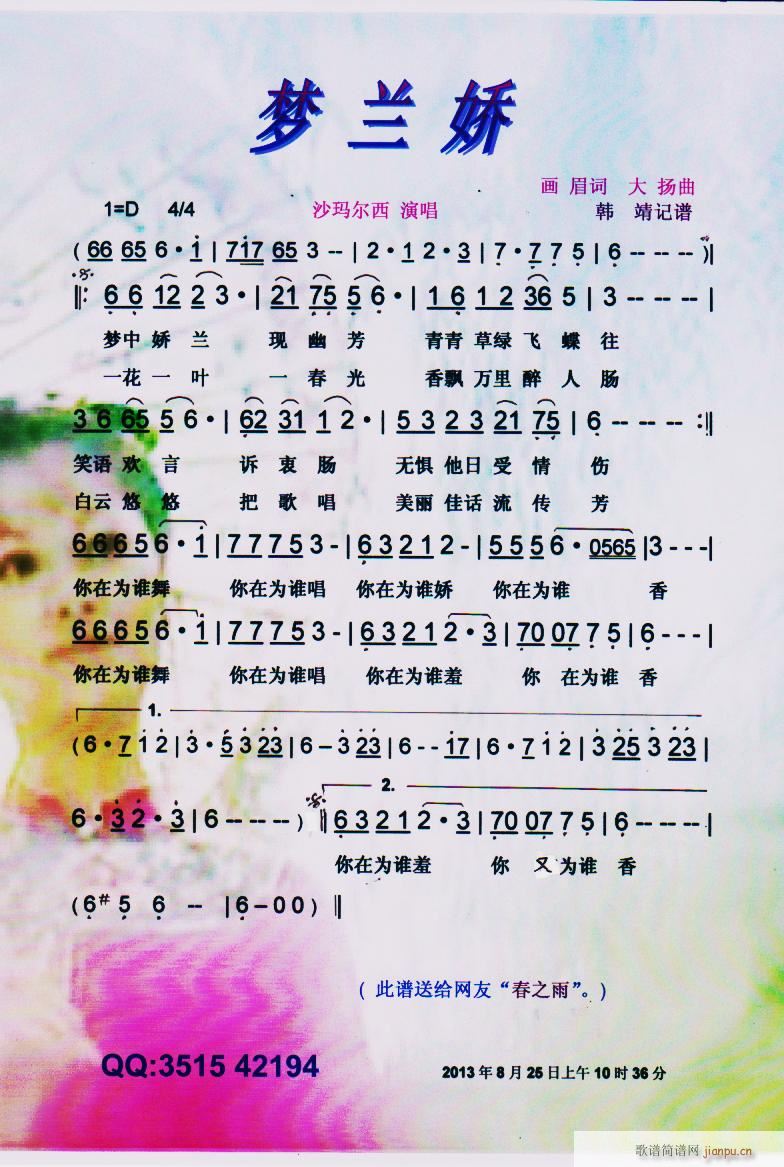 梦兰娇
画 眉词 大 扬曲
1=D 4/4 沙玛尔西 演唱 韩 靖记谱
( 66 65 6 · i | 7i7 65 3 -- | 2 · 1 2 3 · | 7 · 7 7 5 | 6 -- -- )||
||: 6 6 12 2 3 · | 21 75 5 6 · | 1 6 1 2 36 5 | 3 -- -- |
梦中 娇 兰 现 幽 芳 青青 草绿 飞 蝶 往
一花 一 叶 一 春 光 香飘 万里 醉 人 肠
3 6 65 5 6 · | 62 31 1 2 · | 5 3 2 3 21 75 | 6 -- -- :||
笑语 欢 言 诉 衷 肠 无惧 他日 受 情 伤
白云 悠 悠 把 歌 唱 美丽 佳话 流 传 芳
6 6 6 5 6 · i | 7 7 7 5 3 - | 6 3 2 1 2 - | 5 5 5 6 · 0565 | 3 - - - |
你在为谁舞 你在为谁唱 你在为谁娇 你在为谁 香
6 6 6 5 6 · i | 7 7 7 5 3 - | 6 3 2 1 2 · 3 | 70 07 7 5 | 6 - - - |
你在为谁舞 你在为谁唱 你在为谁羞 你 在为谁 香
1.
( 6 · 7 i 2 | 3 · 5 3 23 | 6 – 3 23 | 6 - - i7 | 6 · 7 i 2 | 3 25 3 23 |
2.
6 · 3 2 · 3 | 6 -- -- ) || 6 3 2 1 2 · 3 | 70 07 7 5 | 6 -- -- |
你在为谁羞 你 又为谁 香
( 6 #5 6 -- | 6 – 0 0 ) ||
( 此谱送给网友“春之雨”。)
QQ:3515 42194
2013 年 8 月 25 日上午 10 时 36 分
歌谱简谱网 jianpu.cn